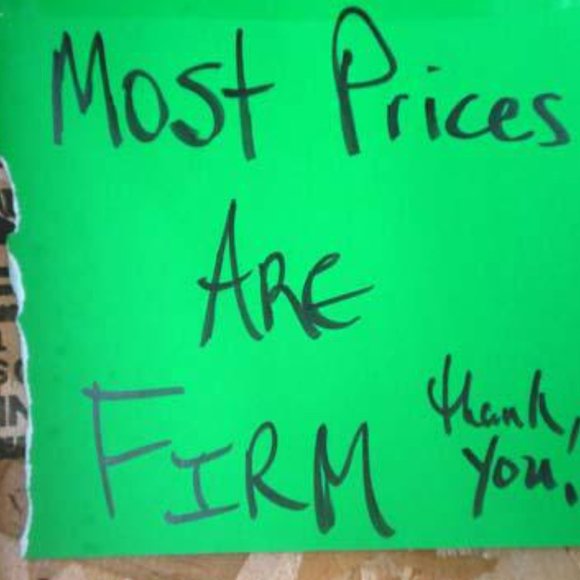 Most Prices
ARE
FIRM
thank,
you.